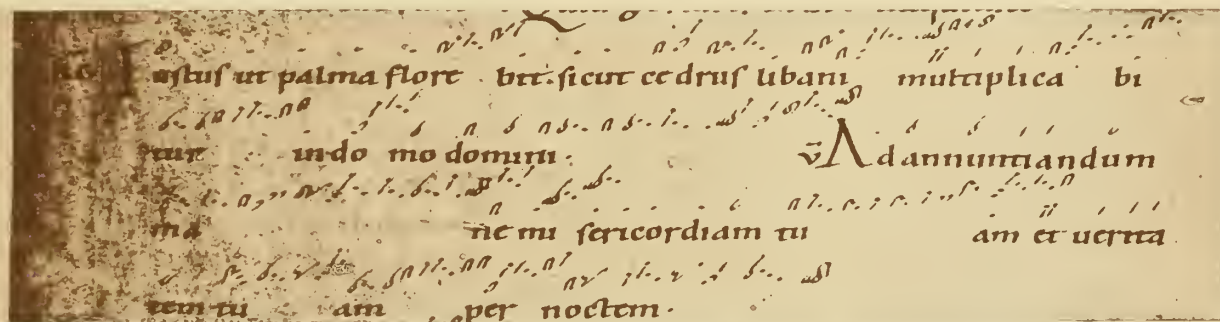 Iustus ut palma flore bit. sicut cedrus libani multiplica bi
tur in do mo domini.   v̄ Ad annuntiandum
ma ne mi sericordiam tu am et uerita
tem tu am per noctem.